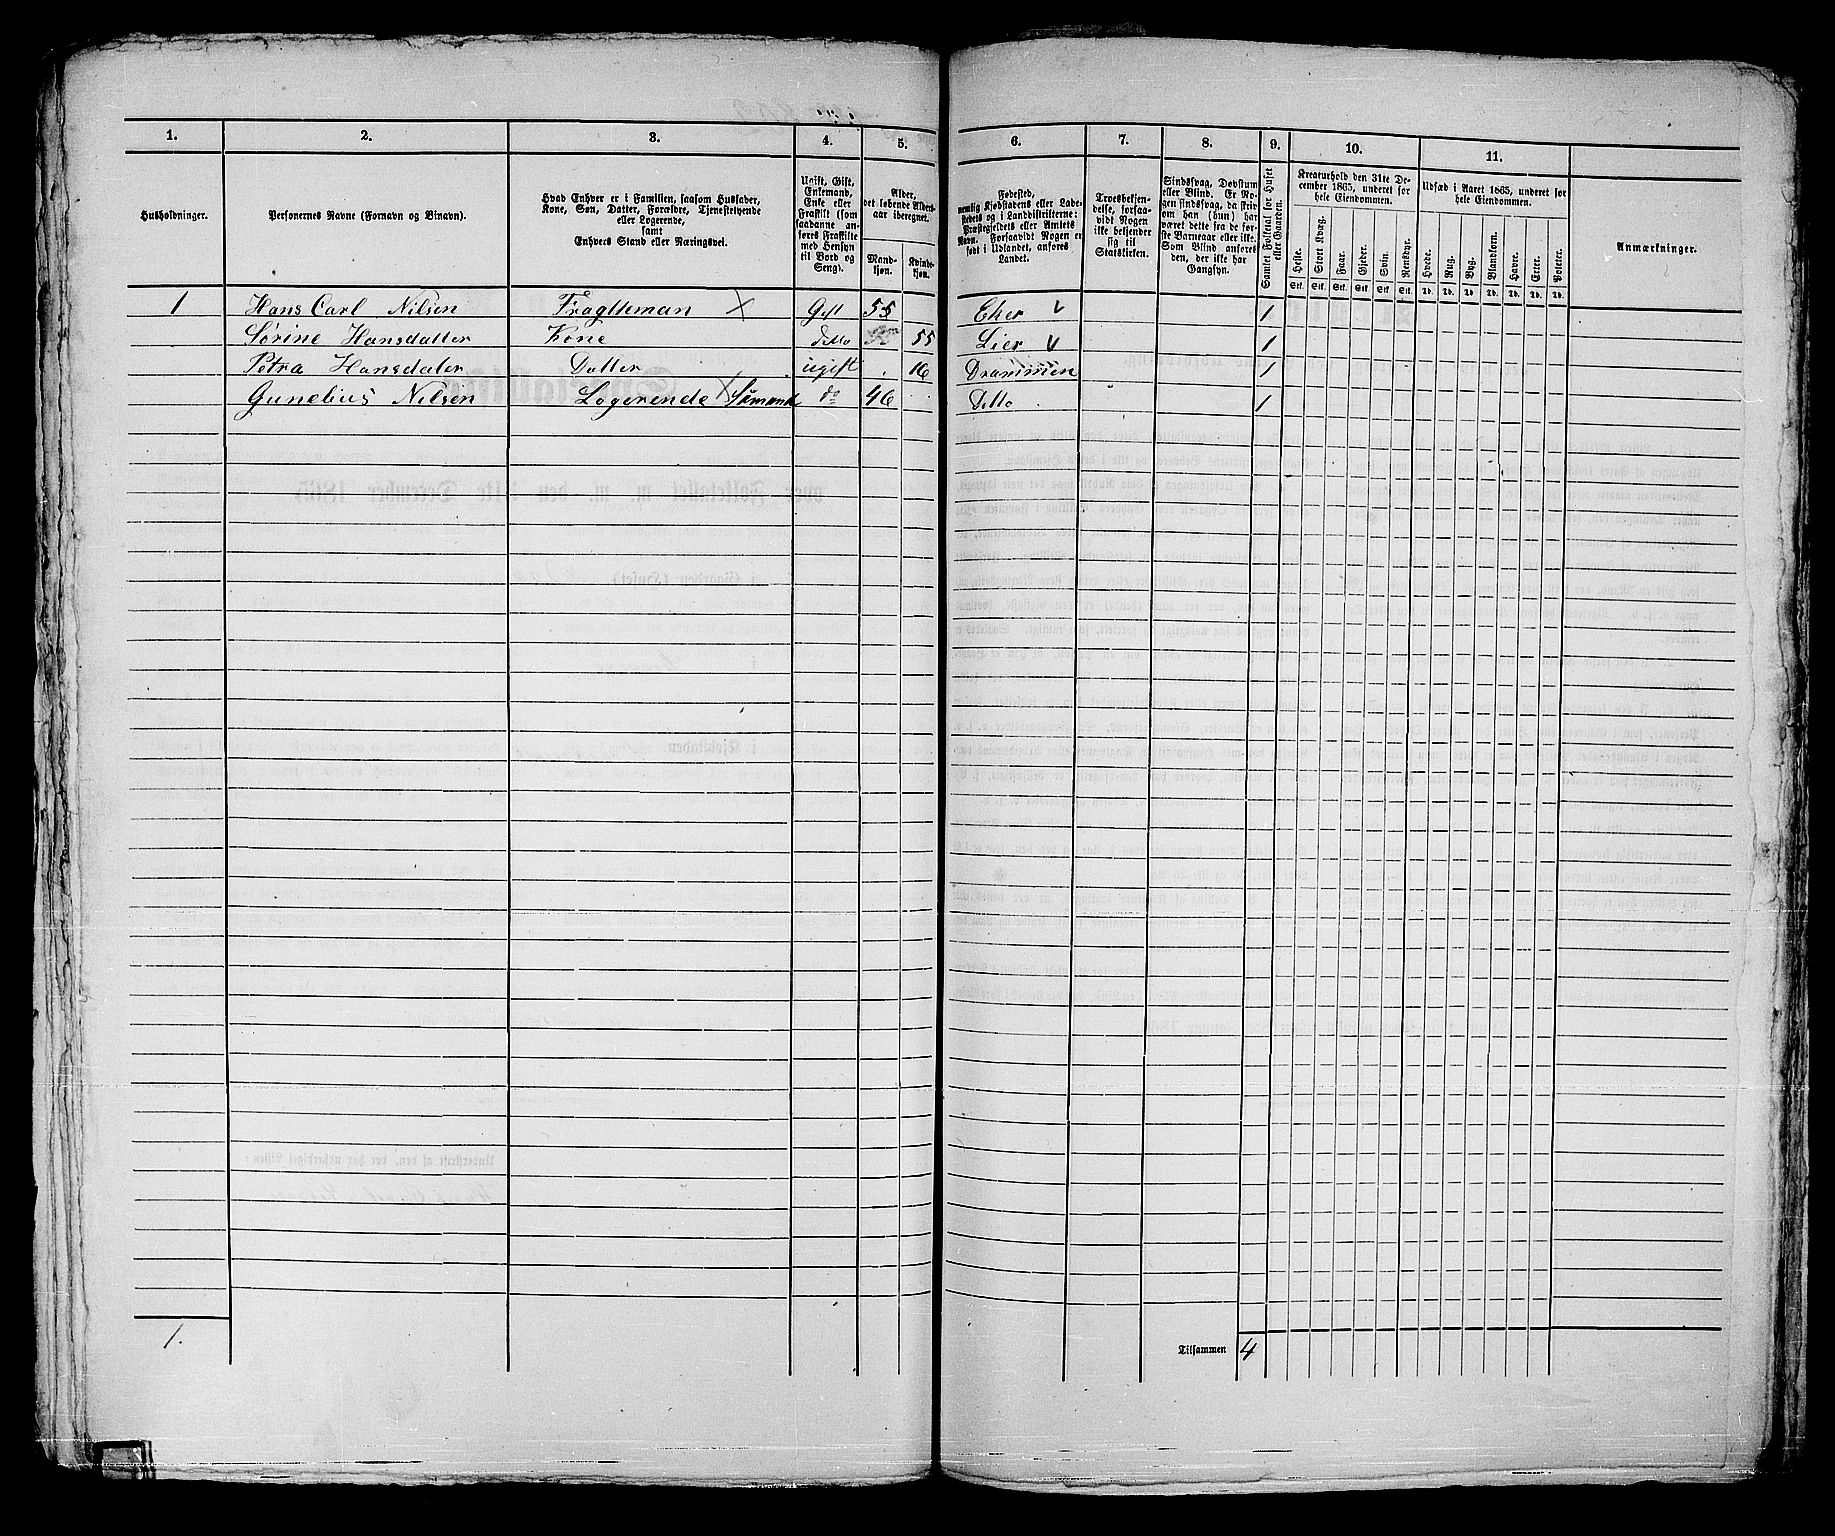 1. 2. 3. 4. 5. 6. 7. 8. 9. 10. 11.
Husholdninger.
Personernes Navne (Fornavn og Binavn).
Hvad Enhver er i Familien, saasom Husfader,
Kone, Søn, Datter, Forældre, Tjenestetyende
eller Logerende,
samt
Enhvers Stand eller Næringsvei.
Ugift, Gift,
Enkemand,
Enke eller
Fraskilt (som
saadanne an-
føres Fraskilte
med Hensyn
til Bord og
Seng).
Alder,
det løbende Alders-
aar iberegnet.
Mand-
kjøn.
Kvinde-
kjøn.
Fødested,
nemlig Kjøbstadens eller Lade-
stedets og i Landdistrikterne:
Præstegjeldets eller Amtets
Navn. Forsaavidt Nogen er
født i Udlandet, anføres
Landet.
Troesbekjen-
delse, forsaa-
vidt Nogen
ikke bekjender
sig til
Statskirken.
Sindssvag, Døvstum
eller Blind. Er No-
gen sindssvag, da skriv
om han (hun) har
været dette fra de før-
ste Barneaar eller ikke.
Som Blind anføres
den, der ikke har
Gangsyn.
Samlet Folketal for Huset
eller Gaarden.
Kreaturhold den 31te De-
cember 1865, underet for
hele Eiendommen.
Heste. Stort Kvæg. Faar. Gjeder. Svin. Rensdyr.
Stk. Stk. Stk. Stk. Stk. Stk.
Udsæd i Aaret 1865, underet for
hele Eiendommen.
Hvede. Rug. Byg. Blandkorn. Havre. Erter. Poteter.
Td. Td. Td. Td. Td. Td. Td.
Anmærkninger.
1 Hans Carl Nilsen Fragtteman Gift 55 Eker 1
Sørine Hansdatter Kone ditto 55 Lier 1
Petra Hansdater Datter ugift 16 Drammen 1
Gunelius Nilsen Logerende Sømand do 46 Ditto 1
1.
Tilsammen 4